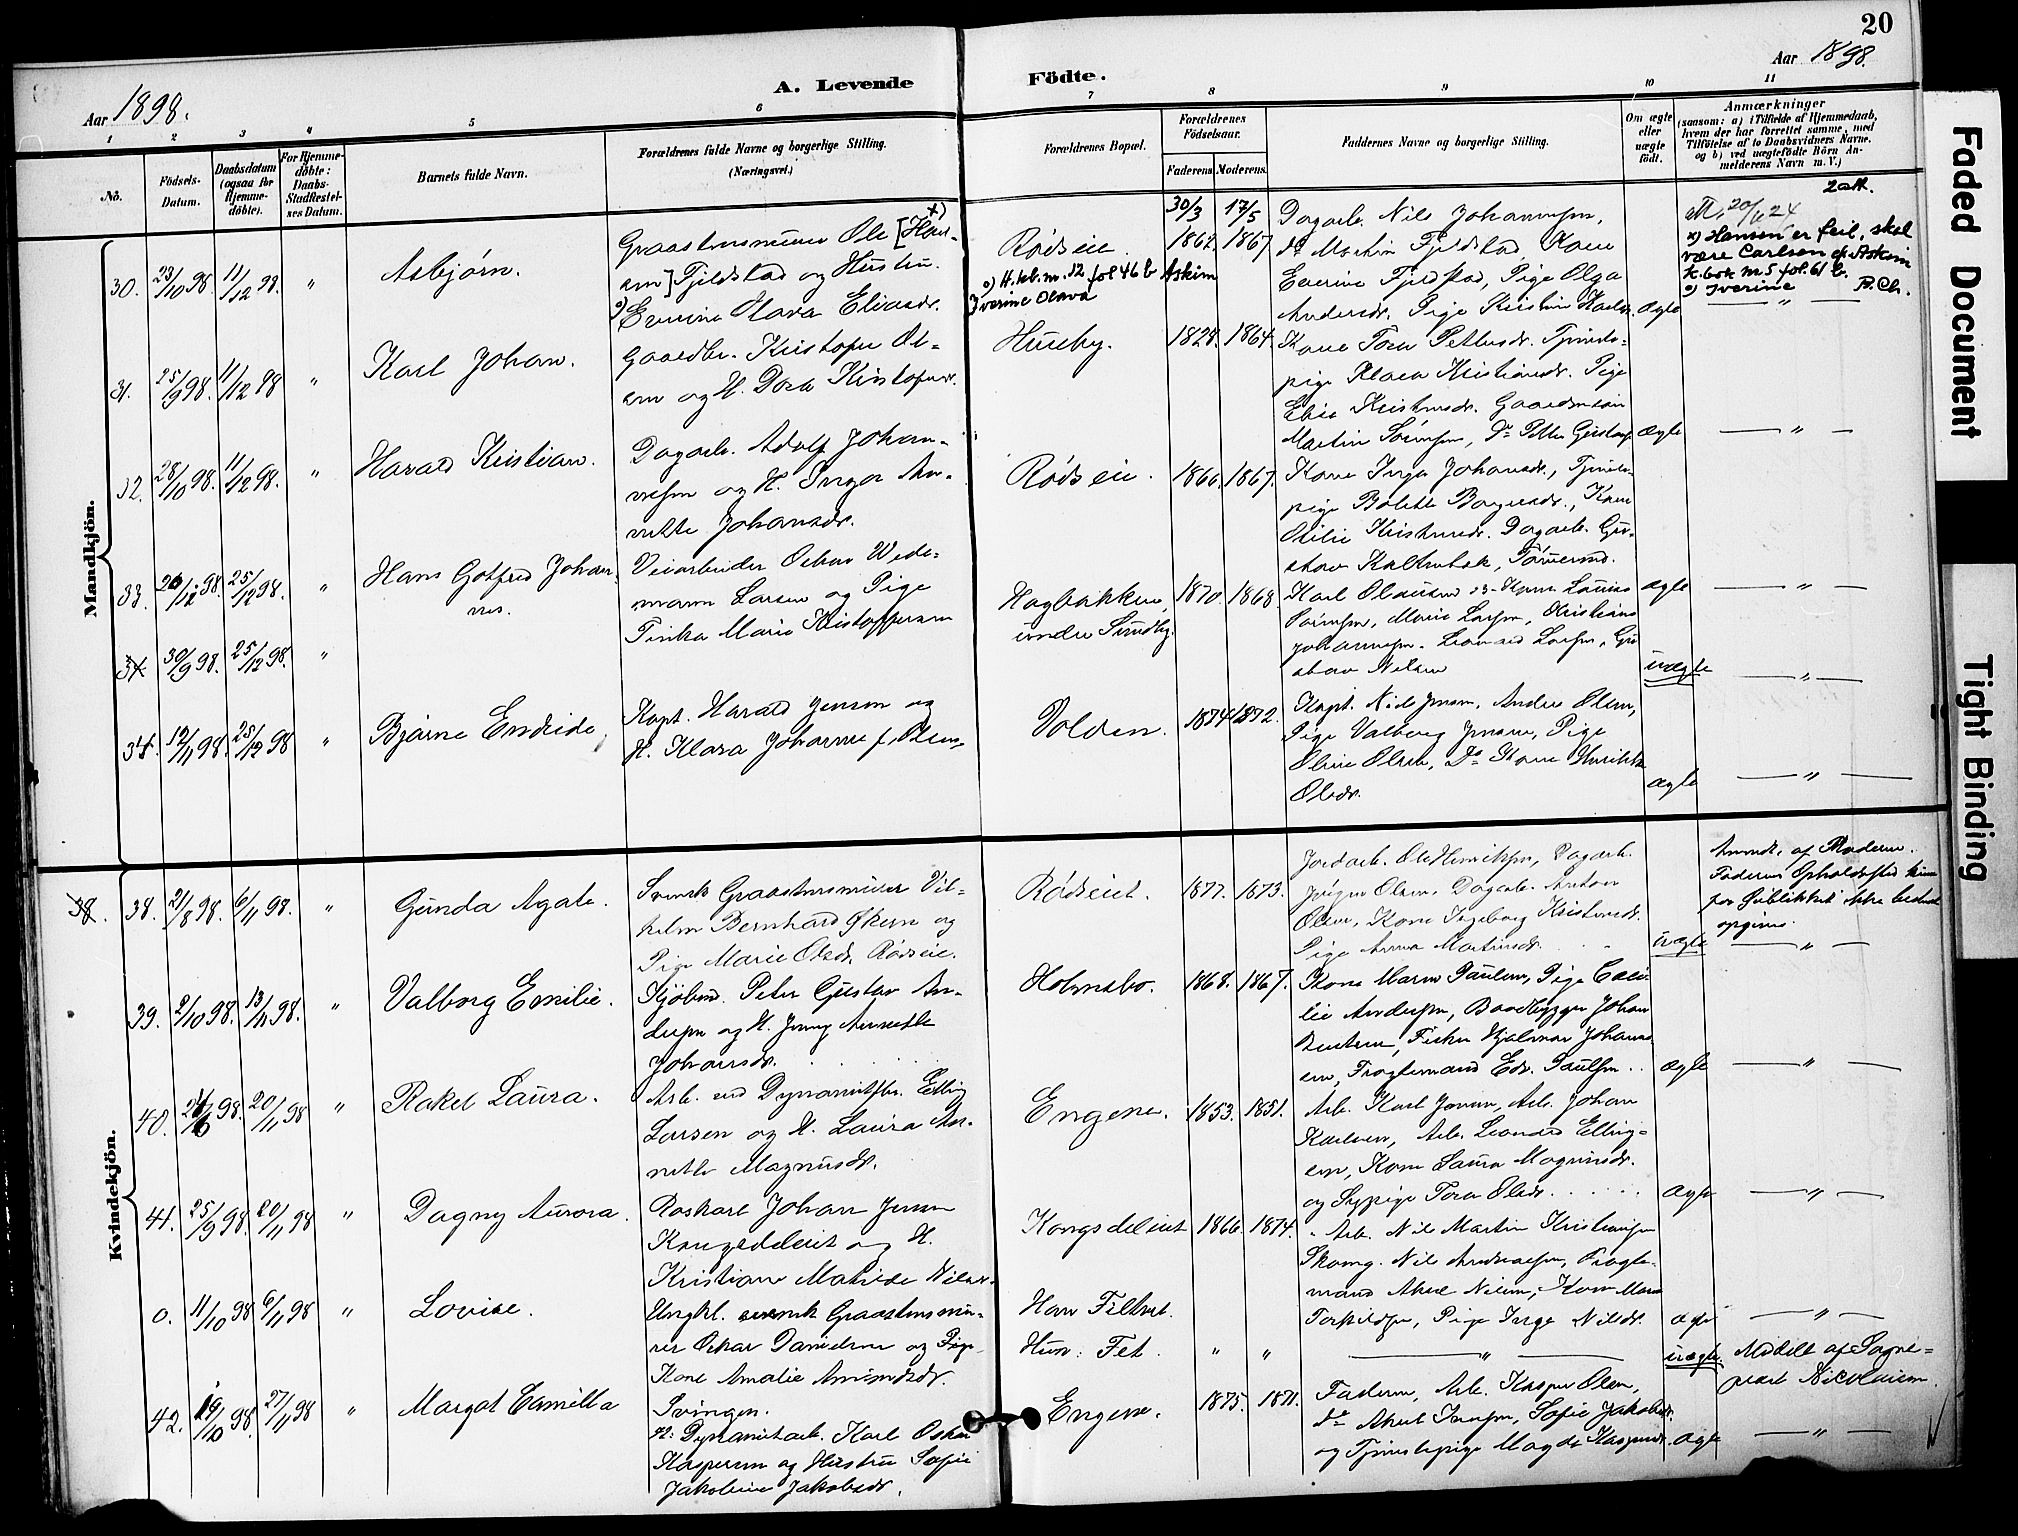 20
Aar 1898.
A. Levende Födte.
Aar 1898.
1 2 3 4 5 6 7 8 9 10 11
No.
Födsels-Datum.
Daabsdatum (ogsaa for Hjemmedöbte).
For Hjemmedöbte: Daabs-Stadfæstelses Datum.
Barnets fulde Navn.
Forældrenes fulde Navne og borgerlige Stilling.
(Næringsvei.)
Forældrenes Bopæl.
Forældrenes Födselsaar.
Faderens Moderens.
Faddernes Navne og borgerlige Stilling.
Om ægte eller uægte födt.
Anmærkninger
(saasom: a) i Tilfælde af Hjemmedaab, hvem der har forrettet samme, med Tilföielse af to Daabsvidners Navne. og b) ved uægtefödte Börn Anmelderens Navn m. V.)
Mandkjön.
30. 23/10 98. 11/12 98. "
Asbjørn.
Graastensminer Ole [Han-
sen] Fjeldstad og Hustru
Everine Olava Eliasdr.
Rødseie
o) H. kb. nr. 12 fol 46 b Askim
Iverine Olava
30/3 17/5
1867
Dagarb. Nils Johannesen,
Do Martin Fjeldstad, Kone
Everine Fjeldstad, Pige Olga
Andersdr. Pige Kristine
ægte
2 att.
x) Hansen er feil, skal
være Carlsen cf. Askim
k. bok nr 5 fol. 61 b.
o) Iverine
31. 25/9 98. 11/12 98 "
Karl Johan.
Gaardbr. Kristofer Ol-
sen og H. Dora Kristofersdr.
Huseby.
1828. 1864.
Kone Tora Pettersdr. Tjeneste-
pige Klara Kristiansdr. Pige
Gaardmand
Martin Sørensen, Do Petter
ægte
— " —
32. 28/10 98. 11/12 98. "
Harald Kristian.
Dagarb. Adolf Johan-
nesen og H. Inga An-
nette Johansdr.
Rødseie.
1866. 1867.
Kone Inga Johansdr., Tjeneste-
pige Bolette
Otilie Kristensdr. Dagarb. Gu-
stav
ægte
— " —
33. 20/12 98. 25/12 98. "
Hans Gotfred Johan-
nes.
Veiarbeider Oskar Wede-
mann Larsen og Pige
Tinka Marie Kristoffersen
Hagbakken
under Sundby.
1870. 1868.
Karl Olausen
Sørensen, Marie Larsen, Kristian
Johannesen. Leonard Larsen, Gu-
stav Nilsen
uægte
— " —
34. 30/9 98. 25/12 98. "
34. 12/11 98. 25/12 98 "
Bjarne Endride.
Kapt. Harald Jensen og
H. Klara Johanne f. Olsen
Volden.
1874 1872.
Kapt. Nils Jensen, Andr. Olsen,
Pige Valborg Jensen, Pige
Oline Olsen, Do Kone Henrikke
Olsdr.
ægte
— " —
Kvindekjön.
38. 38. 21/8 98. 6/11 98. "
Gunda Agate.
Svensk Graastensminer Vil-
helm Bernhard og
Pige Marie Olsdr. Rødseie.
Rødseiet
1877. 1873.
Jordarb. Ole Henriksen, Dagarb.
Jørgen Olsen, Dagarb. Anton
Olsen, Kone Ingeborg Kristensdr.
Pige Anna Martinsdr.
uægte
Anmdt. af Moderen.
Faderens Opholdssted kan
for Øieblikket ikke bestemt
opgives.
— " —
39. 2/10 98. 13/11 98. "
Valborg Emilie.
Kjøbmd. Peter Gustav An-
dersen og H. Jenny Annette
Johansdr.
Holmsbo.
1868. 1867.
Kone Maren Paulsen, Pige
Andersen, Baadbygger Johan
Fisker Hjalmar Johans-
en, Fragtemand Edv. Paulsen
ægte
— " —
40. 24/10 98. 20/11 98 "
Rakel Laura.
Arb. ved Dynamitfbr. Elling
Larsen og H. Laura An-
nette Magnusdr.
Engene.
1853. 1851.
Arb. Karl Jensen, Arb. Johan
Karlsen, Arb. Leonard Elling-
sen, Kone Laura Magnusdr.
og Sypige Tora Olsdr.
ægte
— " —
41. 25/9 98. 20/11 98 "
Dagny Aurora.
Roskarl Johan Jensen
Kongsdeleiet og H.
Kristiane Matilde Nilsdr.
Kongsdeleiet
1866. 1874.
Arb. Nils Martin Kristiansen
Skomg. Nils Andreasen, Fragte-
mand Aksel Nilsen, Kone Maren
Torkildsen, Pige Inga Nilsdr.
ægte
— " —
0. 11/10 98 6/11 98 "
Lovise.
Ungkl. svensk Graastensmi-
ner Oskar Danielsen og Pige
Kone Amalie Amundsdr.
Svingen.
Han Filtvet.
Hun: Fet. " "
— " —
uægte
Meddelt af Sogne-
præst Nicolaisen.
42. 19/10 98. 27/11 98 "
Margot Camilla
Dynamitarb. Karl Oskar
Kaspersen og Hustru Sofie
Jakobine Jakobsdr.
Engene.
1875. 1871.
Faderen, Arb. Kasper Olsen,
Do Aksel Jensen, Sofie Jakobsdr.
og Tjenestepige Magda Kaspersdr.
ægte
— " —
Faded Document
Tight Binding